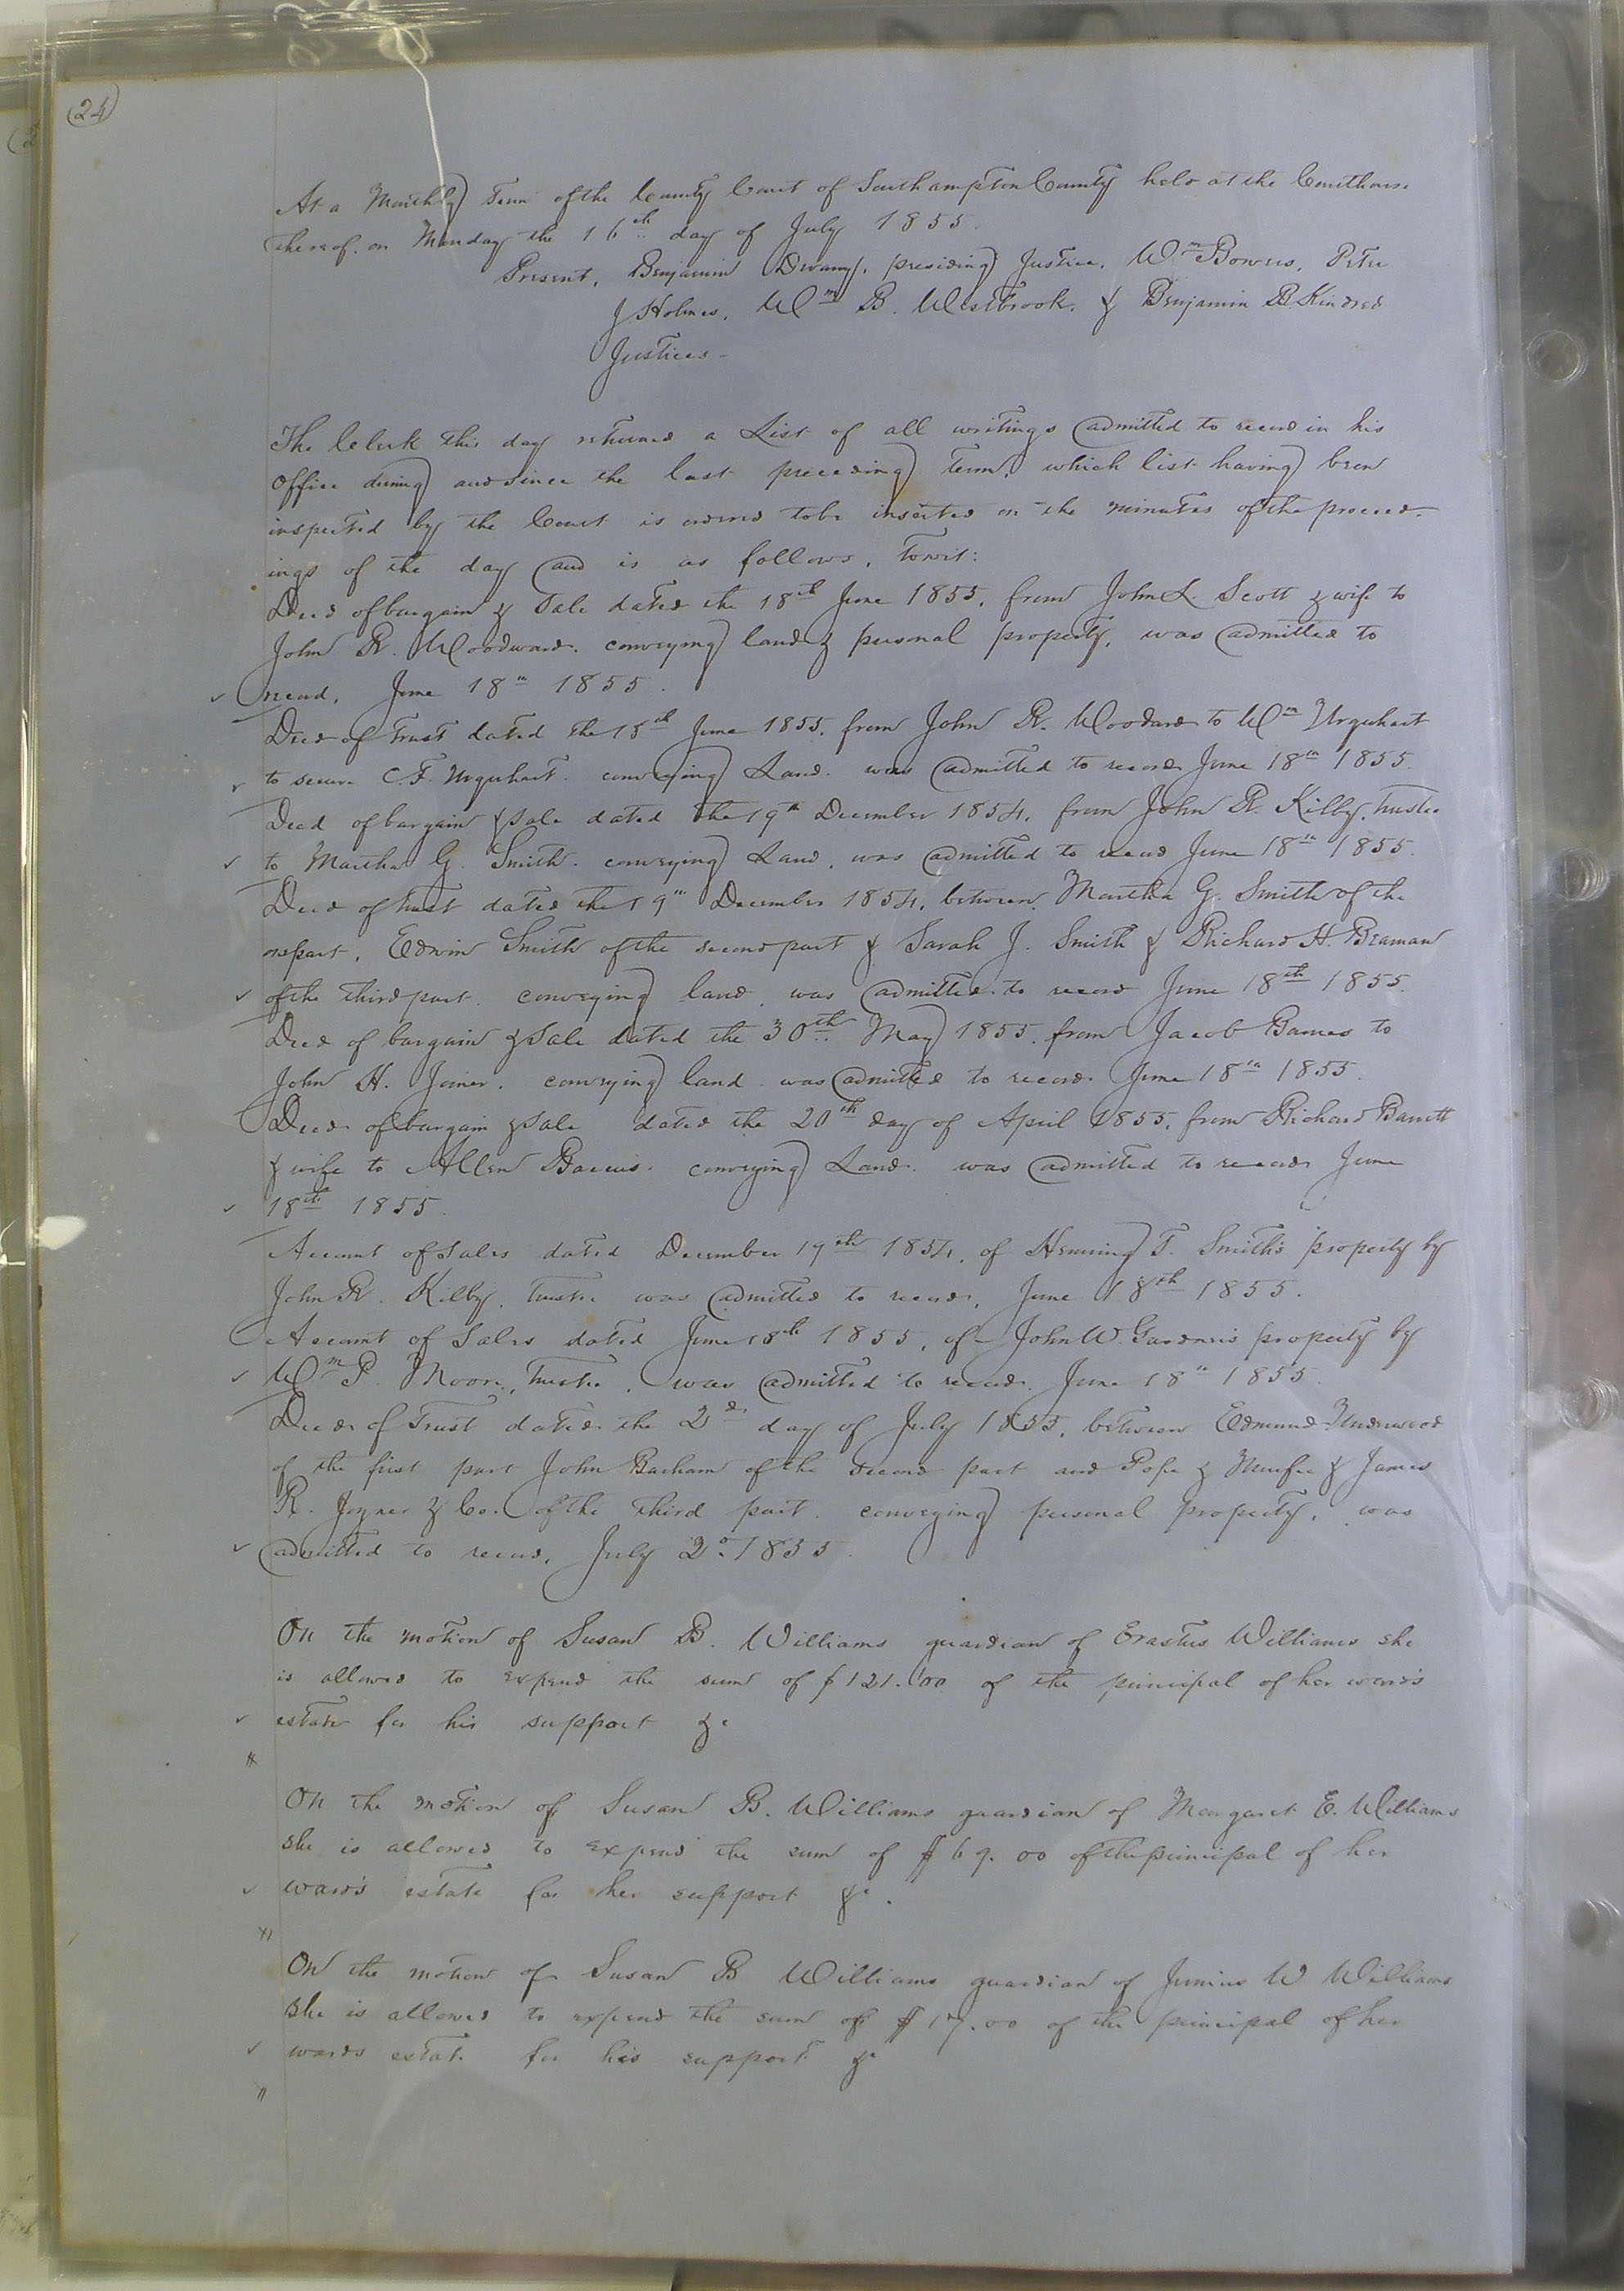 (24)
At a Monthly Term of the County Court of Southampton County held at the Courthouse
thereof, on Monday the 16th day of July 1855.
Present, Benjamin presiding Justice, Wm Bowers, Peter
J Holmes, Wm B. Westbrook, & Benjamin B. Kindred
Justices -
The Clerk this day returned a List of all writings admitted to record in his
Office during and since the last preceding Term, which list having been
inspected by the Court is ordered to be inserted on the minutes of the proceed-
ings of the day and is as follows, Towit:
Deed of bargain & Sale dated the 18th June 1855, from John L. Scott & wife to
John R. Woodward, conveying land & personal property, was admitted to
record, June 18th 1855.
Deed of Trust dated the 18th June 1855, from John R. Woodard to Wm Urquhart
to secure C. F. Urquhart, conveying Land, was admitted to record June 18th 1855.
Deed of bargain & Sale dated the 19th December 1854, from John R. Kilby, Trustee
to Martha G. Smith, conveying Land, was admitted to record June 18th 1855.
Deed of Trust dated the 19th December 1854, between Martha G. Smith of the
one part, Edwin Smith of the second part & Sarah J. Smith & Richard H. Braman
of the third part, conveying land, was admitted to record June 18th 1855.
Deed of bargain & Sale dated the 30th May 1855, from Jacob Barnes to
John H. Joiner, conveying land was admitted to record June 18th 1855.
Deed of bargain & Sale dated the 20th day of April 1855, from Richard Barrett
& wife to Allen conveying Land, was admitted to record June
18th 1855.
Account of Sales dated December 19th 1854, of Henning T. Smith's property by
John R. Kilby, Trustee was admitted to record, June 18th 1855.
Account of Sales dated June 18th 1855, of John W. Gardner's property by
Wm P. Moore, Trustee, was admitted to record June 18th 1855.
Deed of Trust dated the 2d day of July 1855, between Edmund Underwood
of the first part John Barham of the second part and Pope & Murfee & James
R. Joyner & Co. of the third part, conveying personal property, was
admitted to record, July 2d 1855.
On the motion of Susan B. Williams guardian of Erastus Williams she
is allowed to expend the sum of $121.00 of the principal of her ward's
estate for his support &c
On the motion of Susan B. Williams guardian of Margaret E. Williams
she is allowed to expend the sum of $69.00 of the principal of her
ward's estate for her support &c.
On the motion of Susan B Williams guardian of Junius W Williams
she is allowed to expend the sum of $17.00 of the principal of her
wards estate for his support &c